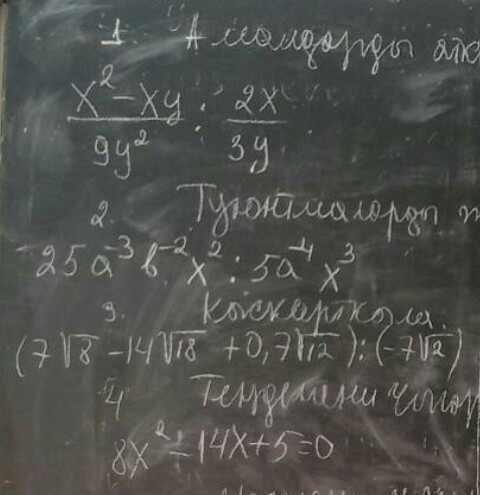 1. Амалдарды атк
x² - xy / 9y² : 2x / 3y
2. Туюнтмаларды т
25a⁻³b⁻²x² : 5a⁻⁴x³
3. Кыскарткыла.
(7√8 - 14√18 + 0,7√12) : (-7√2)
4 Теңдемени чыгар
8x² - 14x + 5 = 0